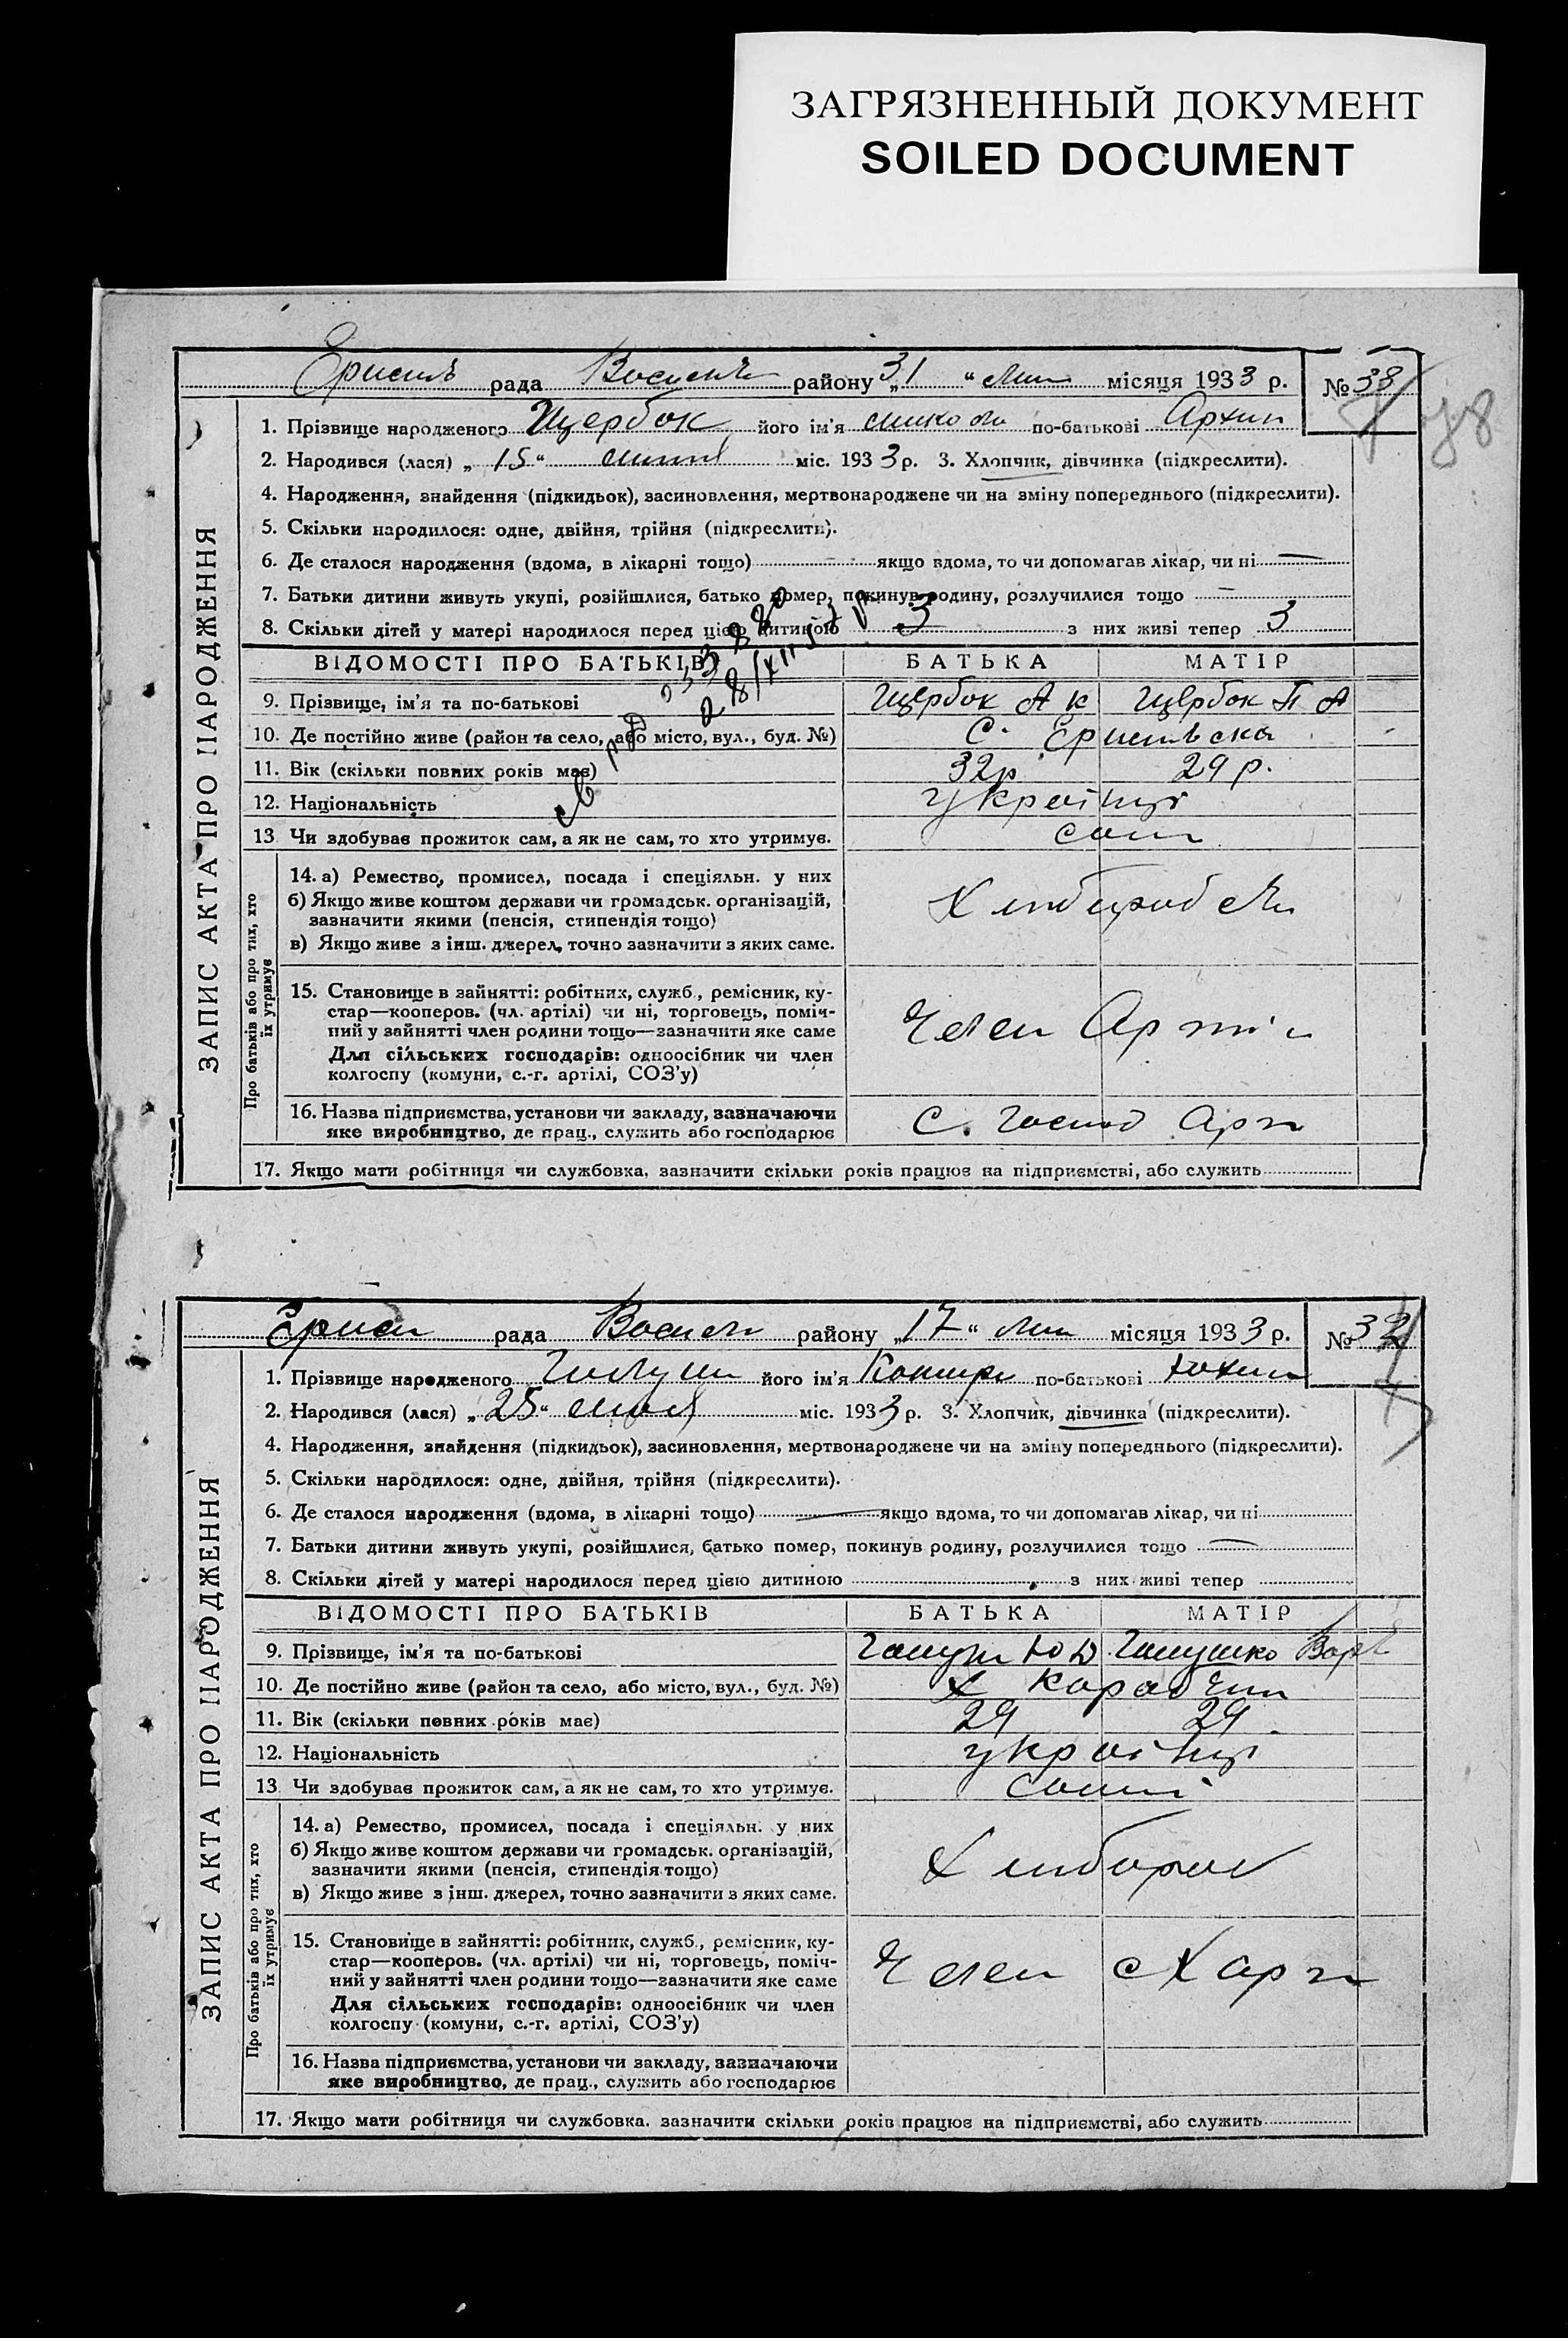 ЗАГРЯЗНЕННЫЙ ДОКУМЕНТ
SOILED DOCUMENT
рада району „31“ місяця 1933 р. № 33
1. Прізвище народженого Щербак його ім'я по-батькові Архип
2. Народився (лася) „15“ міс. 1933 р. 3. Хлопчик, дівчинка (підкреслити).
4. Народження, знайдення (підкидьок), засиновлення, мертвонароджене чи на зміну попереднього (підкреслити).
5. Скільки народилося: одне, двійня, трійня (підкреслити).
6. Де сталося народження (вдома, в лікарні тощо) якщо вдома, то чи допомагав лікар, чи ні
7. Батьки дитини живуть укупі, розійшлися, батько помер, покинув родину, розлучилися тощо
8. Скільки дітей у матері народилося перед цією дитиною 3 з них живі тепер 3
ВІДОМОСТІ ПРО БАТЬКІВ БАТЬКА МАТІР
9. Прізвище, ім'я та по-батькові Щербак А К Щербак П А
10. Де постійно живе (район та село, або місто, вул., буд. №) С.
11. Вік (скільки повних років має) 32р 29 р.
12. Національність українці
13 Чи здобуває прожиток сам, а як не сам, то хто утримує. сам
14. а) Ремество, промисел, посада і спеціяльн. у них
б) Якщо живе коштом держави чи громадськ. організацій,
зазначити якими (пенсія, стипендія тощо)
в) Якщо живе з інш. джерел, точно зазначити з яких саме.
15. Становище в зайнятті: робітник, служб., ремісник, ку-
стар—кооперов. (чл. артілі) чи ні, торговець, поміч-
ний у зайнятті член родини тощо—зазначити яке саме
Для сільських господарів: одноосібник чи член
колгоспу (комуни, с.-г. артілі, СОЗ'у)
Член Артіл
16. Назва підприємства, установи чи закладу, зазначаючи
яке виробництво, де прац., служить або господарює
С. госпо Арт
17. Якщо мати робітниця чи службовка, зазначити скільки років працює на підприємстві, або служить
ЗАПИС АКТА ПРО НАРОДЖЕННЯ
Про батьків або про тих, хто
їх утримує
рада району „17“ місяця 1933 р. № 32
1. Прізвище народженого його ім'я по-батькові
2. Народився (лася) „25“ міс. 1933 р. 3. Хлопчик, дівчинка (підкреслити).
4. Народження, знайдення (підкидьок), засиновлення, мертвонароджене чи на зміну попереднього (підкреслити).
5. Скільки народилося: одне, двійня, трійня (підкреслити).
6. Де сталося народження (вдома, в лікарні тощо) якщо вдома, то чи допомагав лікар, чи ні
7. Батьки дитини живуть укупі, розійшлися, батько помер, покинув родину, розлучилися тощо
8. Скільки дітей у матері народилося перед цією дитиною з них живі тепер
ВІДОМОСТІ ПРО БАТЬКІВ БАТЬКА МАТІР
9. Прізвище, ім'я та по-батькові
10. Де постійно живе (район та село, або місто, вул., буд. №)
11. Вік (скільки повних років має) 29 29
12. Національність українці
13 Чи здобуває прожиток сам, а як не сам, то хто утримує. самі
14. а) Ремество, промисел, посада і спеціяльн. у них
б) Якщо живе коштом держави чи громадськ. організацій,
зазначити якими (пенсія, стипендія тощо)
в) Якщо живе з інш. джерел, точно зазначити з яких саме.
15. Становище в зайнятті: робітник, служб., ремісник, ку-
стар—кооперов. (чл. артілі) чи ні, торговець, поміч-
ний у зайнятті член родини тощо—зазначити яке саме
Для сільських господарів: одноосібник чи член
колгоспу (комуни, с.-г. артілі, СОЗ'у)
Член
16. Назва підприємства, установи чи закладу, зазначаючи
яке виробництво, де прац., служить або господарює
17. Якщо мати робітниця чи службовка, зазначити скільки років працює на підприємстві, або служить
ЗАПИС АКТА ПРО НАРОДЖЕННЯ
Про батьків або про тих, хто
їх утримує